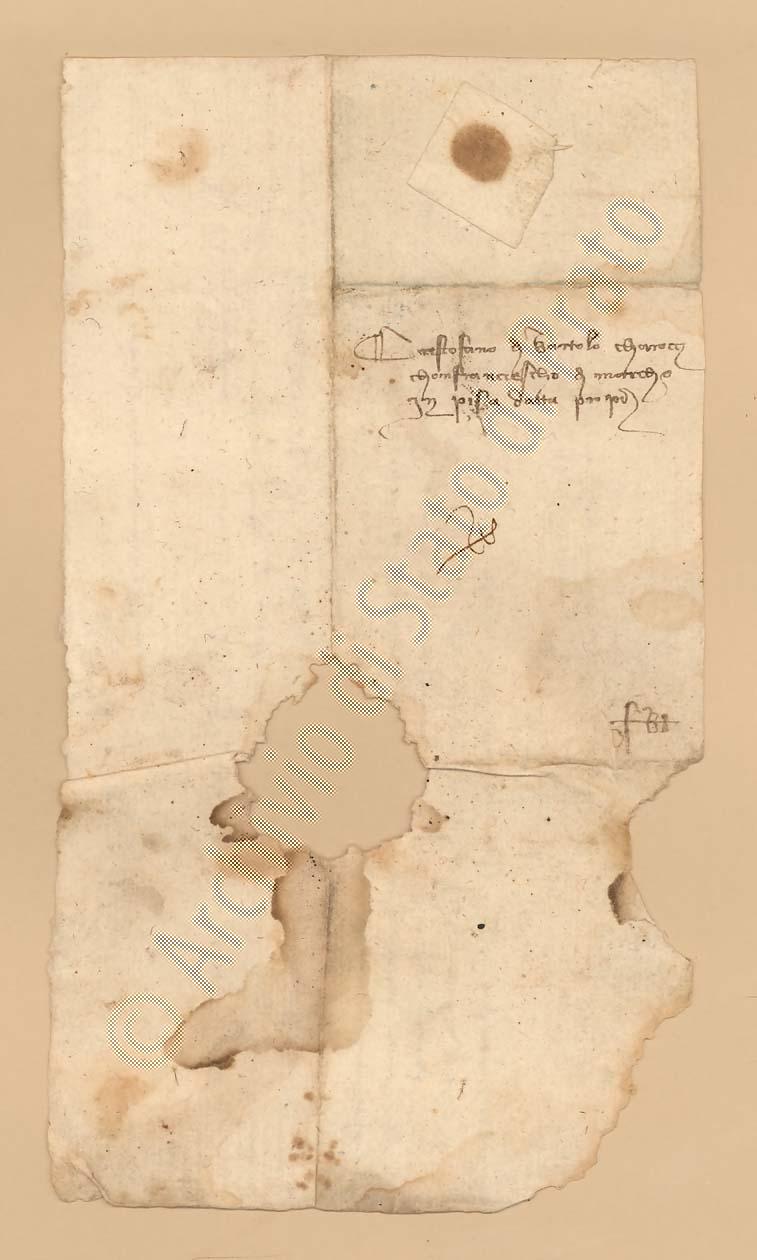 Cristofano di Bartolo charocci
chonfranciescho di marcho
In pisa data propi
© Archivio di Stato di Prato